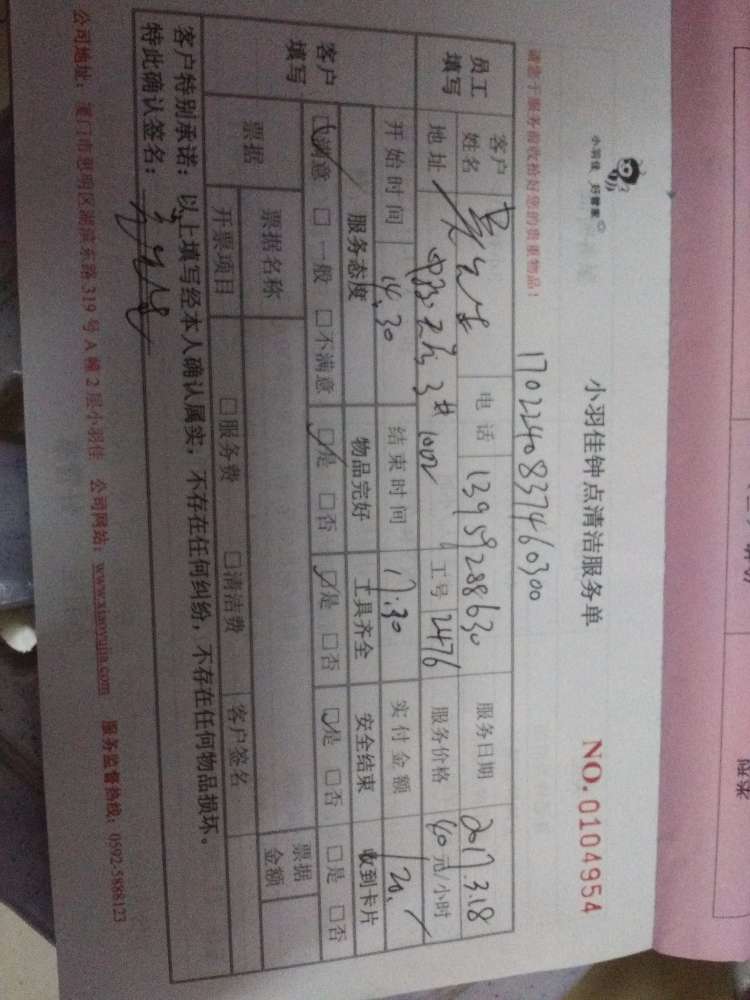 小羽佳 好管家
小羽佳钟点清洁服务单
NO.0104954
1702240837460300
请您于服务前收拾好您的贵重物品!
员工填写 客户姓名 电话 13959288630 服务日期 2017.3.18
地址 3 1002 工号 2476 服务价格 40元/小时
开始时间 14.30 结束时间 17.30 实付金额 120.
客户填写 服务态度 物品完好 工具齐全 安全结束 收到卡片
□满意 □一般 □不满意 □是 □否 □是 □否 □是 □否 □是 □否
票据 票据名称 票据金额
开票项目 □服务费 □清洁费 客户签名
客户特别承诺:以上填写经本人确认属实,不存在任何纠纷,不存在任何物品损坏。
特此确认签名:
公司地址:厦门市思明区湖滨东路319号A幢2层小羽佳 公司网站:www.xiaoyujia.com 服务监督热线:0592-5888123